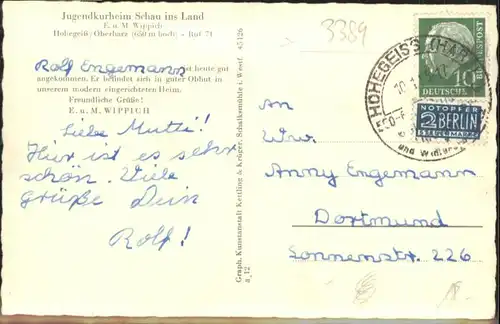 Jugendkurheim Schau ins Land
E. u. M. Wippich
Hohegeiß/Oberharz (650 m hoch) - Ruf 74
Rolf Engemann ist heute gut
angekommen. Er befindet sich in guter Obhut in
unserem modern eingerichteten Heim.
Freundliche Grüße!
E. u. M. WIPPICH
Liebe Mutti!
Hier ist es sehr
schön. Viele
grüße Dein
Rolf!
Graph. Kunstanstalt Kettling & Krüger, Schalksmühle i. Westf. 45126
a 12
3389
HOHEGEISS (HARZ)
und Winter
DEUTSCHE BUNDESPOST
10
NOTOPFER
2 BERLIN
STEUERMARKE
An
Wwe
Anny Engemann
Dortmund
Sonnenstr. 226